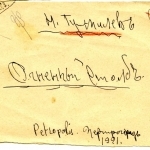 Н. Гумилевъ
Огненный Столпъ
Petropolis. Петроградъ
1921.